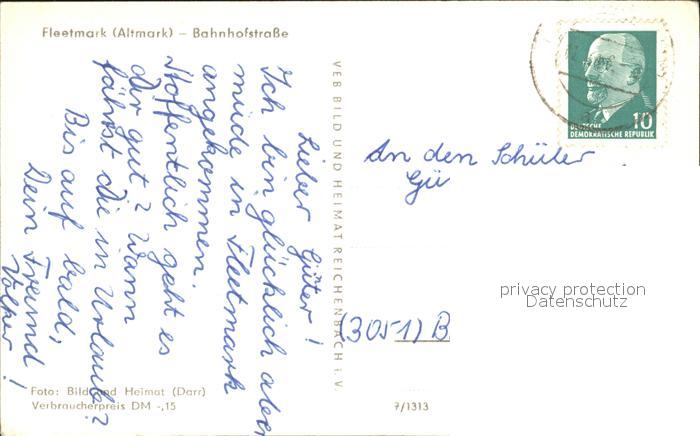 Fleetmark (Altmark) – Bahnhofstraße
Lieber Günter!
Ich bin glücklich aber
müde in Fleetmark
angekommen.
Hoffentlich geht es
dir gut? Wann
fährst die in Urlaub?
Bis auf bald,
Dein Freund
Volker!
Foto: Bild und Heimat (Darr)
Verbraucherpreis DM -,15
VEB BILD UND HEIMAT REICHENBACH i. V.
7/1313
10
DEUTSCHE
DEMOKRATISCHE REPUBLIK
An den Schüler
Gü
(3051) B
privacy protection
Datenschutz